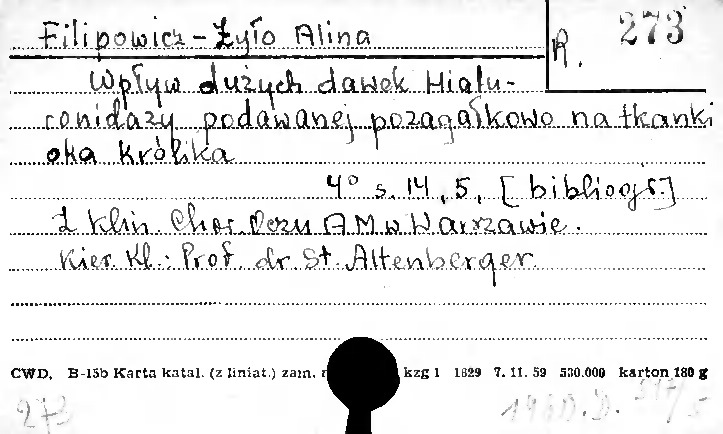 Filipowicz-Żyło Alina
R. 273
Wpływ dużych dawek Hialu-
ronidazy podawanej pozagałkowo na tkanki
oka królika
4° s. 14, 5, [bibliogr.]
Z Klin. Chor. Oczu AM w Warszawie.
Kier. Kl.: Prof. dr. St. Altenberger
CWD, B-15b Karta katal. (z liniat.) zam. kzg 1 1829 7.11.59 530.000 karton 180 g
273 1960.D. 517/5